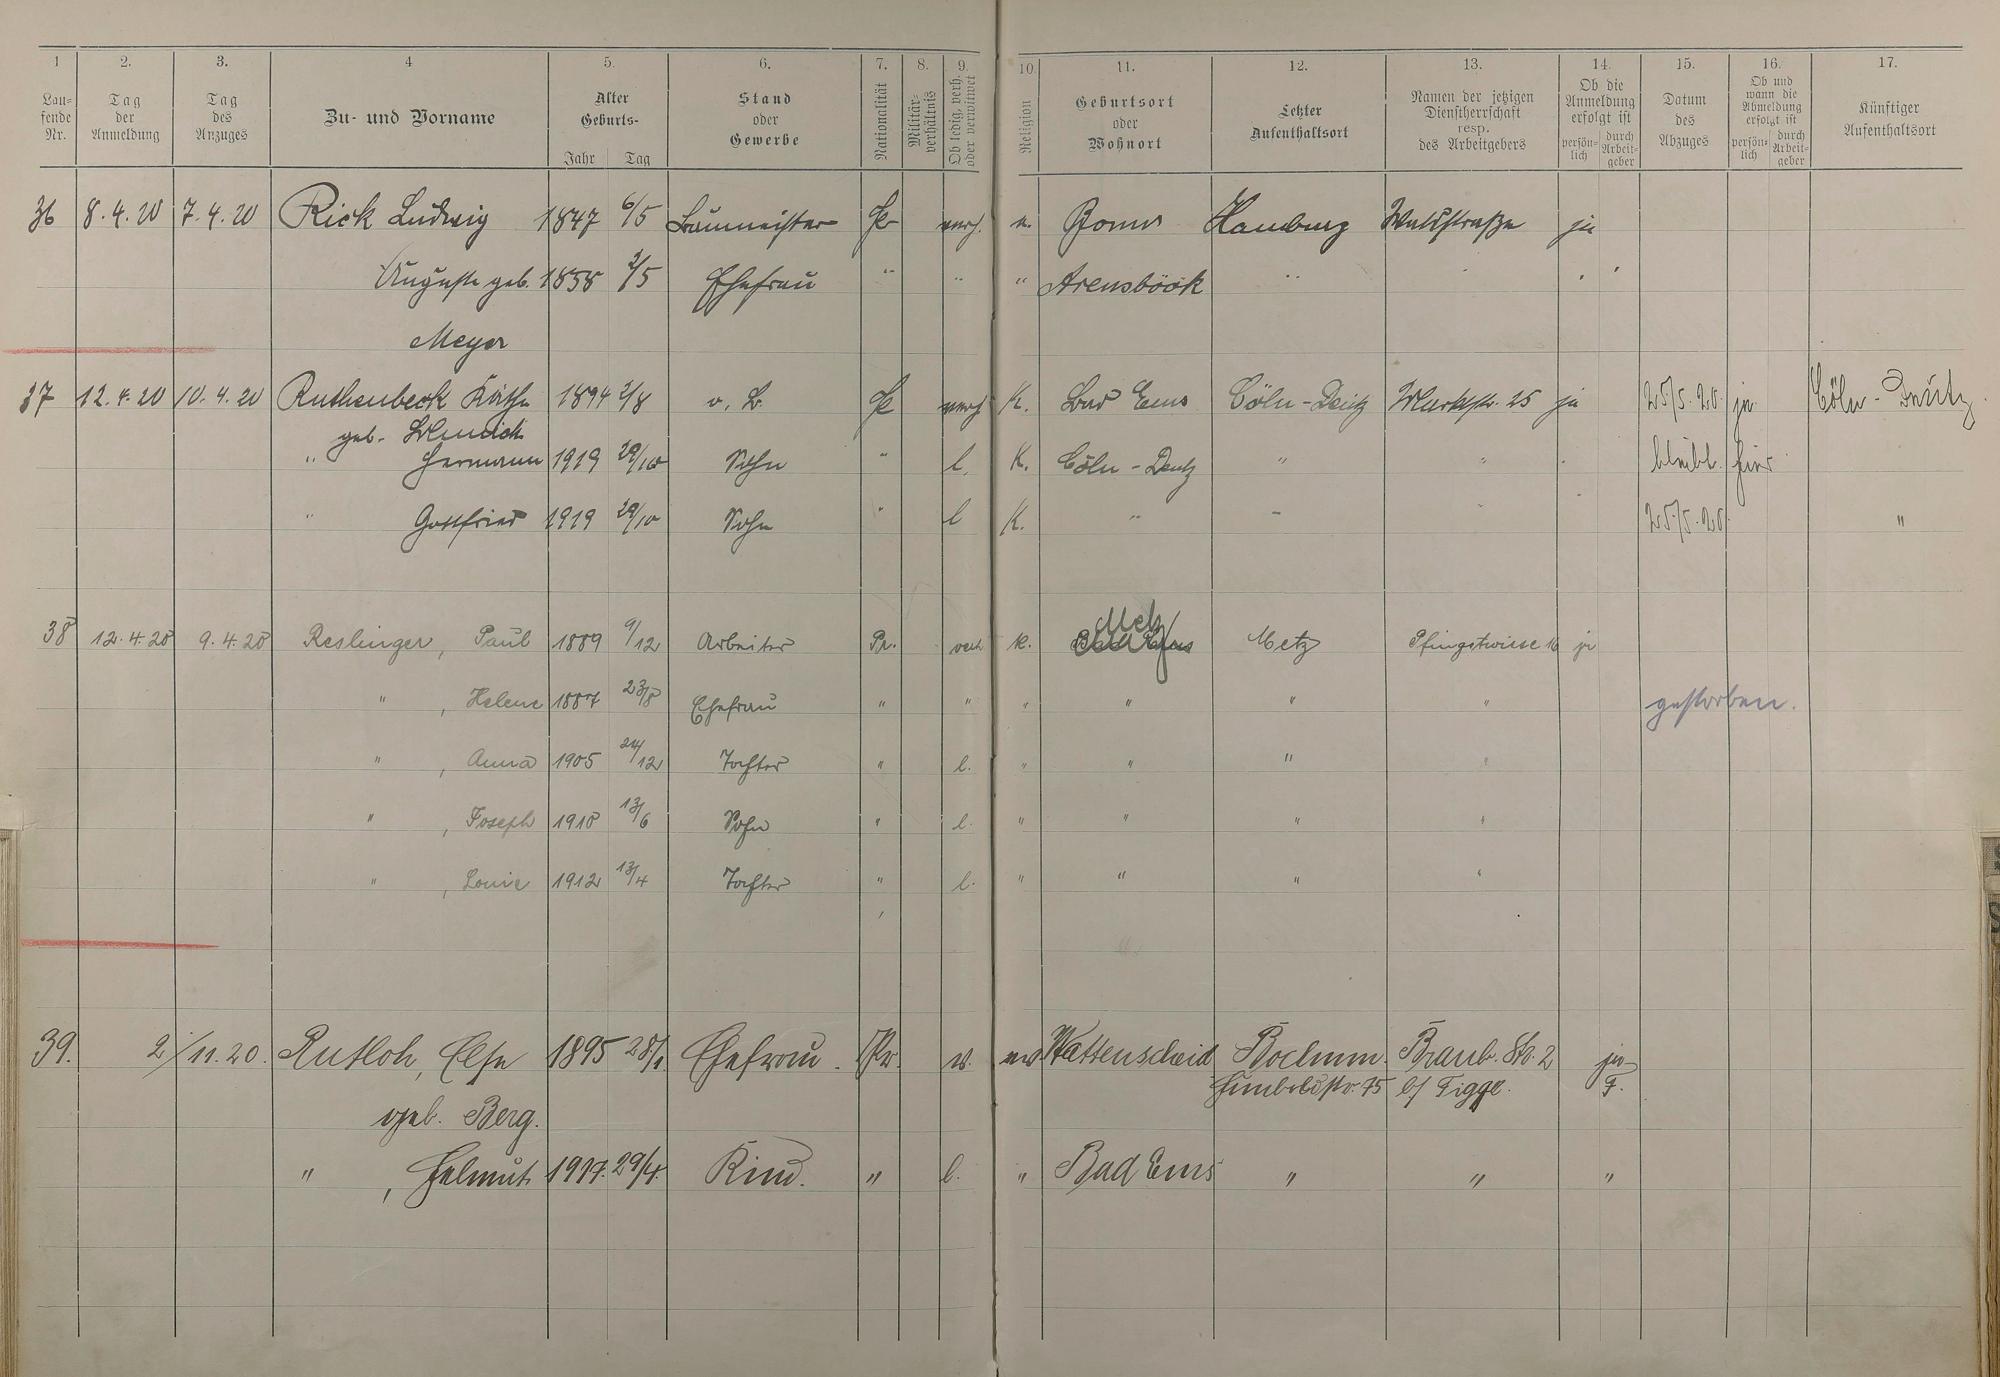 1 2. 3. 4 5. 6. 7. 8. 9. 10. 11. 12. 13. 14. 15. 16. 17.
Lau-fende Nr. Tag der Anmeldung Tag des Anzuges Zu- und Vorname Alter Geburts- Jahr Tag Stand oder Gewerbe Nationalität Militär-verhältnis Ob ledig, verh. oder verwitwet Religion Geburtsort oder Wohnort Letzter Aufenthaltsort Namen der jetzigen Dienstherrschaft resp. des Arbeitgebers Ob die Anmeldung erfolgt ist persön-lich durch Arbeit-geber Datum des Abzuges Ob und wann die Abmeldung erfolgt ist persön-lich durch Arbeit-geber Künftiger Aufenthaltsort
36 8.4.20 7.4.20 Rick Ludwig 1847 6/5 Baumeister Pr verh. Hamburg Waldstraße ja
Auguste geb. 1858 2/5 Ehefrau " " " Arensböök "
Meyer
37 12.4.20 10.4.20 Ruthenbeck Käthe 1894 2/8 Pr verh K. Bad Ems Cöln-Deutz Marktstr. 25 ja 25/5.20 ja Cöln-Deutz
geb.
" Hermann 1919 29/10 Sohn " l. K. Cöln-Deutz " " bleibt hier
" Gottfried 1919 29/10 Sohn " l K. " " " 25/5.20 "
38 12.4.20 9.4.20 Reslinger, Paul 1889 9/12 Arbeiter Pr. verh k. Metz Metz Pfingstwiese 16 ja
" , Helene 1887 23/8 Ehefrau " " " " " " gestorben.
" , Anna 1905 24/12 Tochter " l. " " " "
" , Joseph 1910 13/6 Sohn " l. " " " "
" , Louie 1912 13/4 Tochter " l. " " " "
39. 2/11.20. Rutloh, Else 1895 28/1 Ehefrau. Pr. v. ev. Wattenscheid Bochum. Braub. Str. 2 ja
Humboldstr. 75 b/ Figge. F.
geb. Berg.
" , Helmut 1917. 29/4. Kind. " l. " Bad Ems " " "